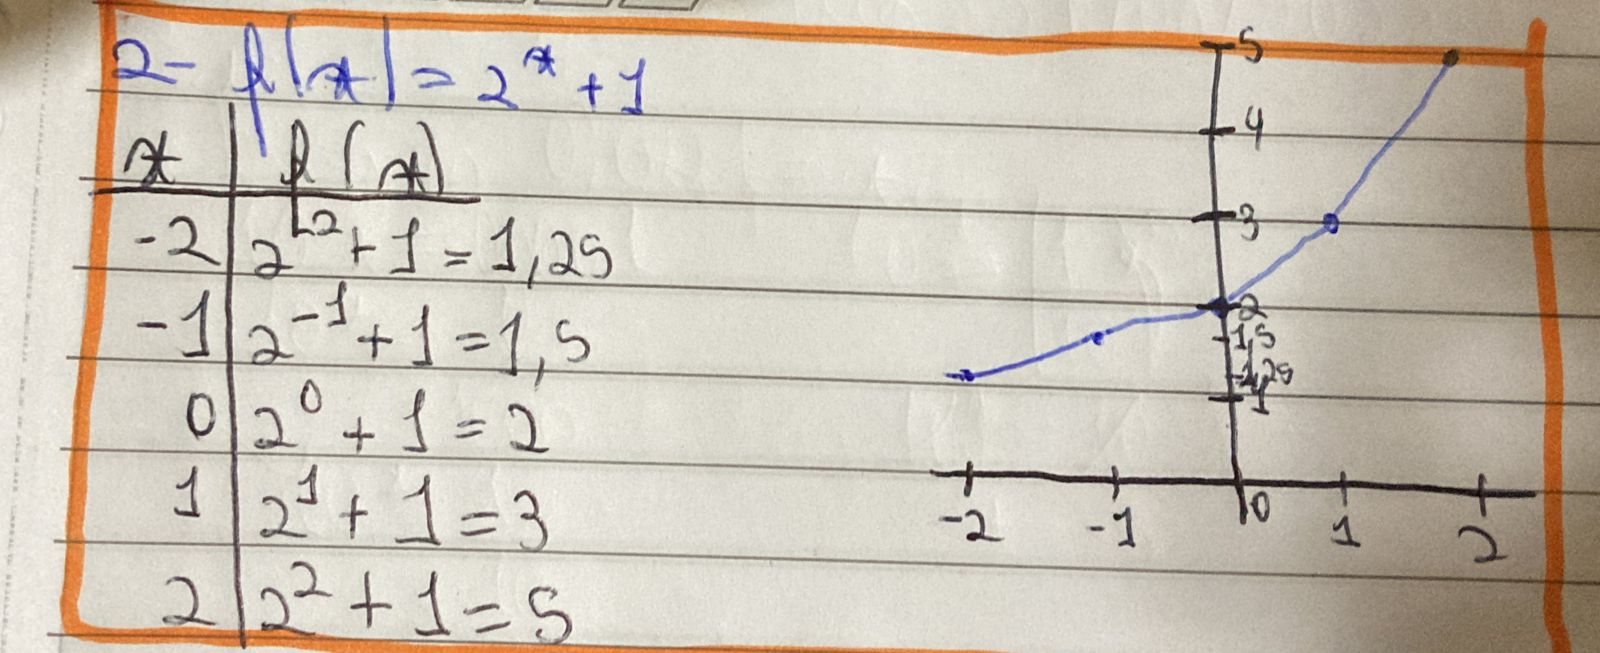 2- f(x) = 2^x + 1
x | f(x)
-2 | 2^-2 + 1 = 1,25
-1 | 2^-1 + 1 = 1,5
0 | 2^0 + 1 = 2
1 | 2^1 + 1 = 3
2 | 2^2 + 1 = 5
5
4
3
2
1,5
1,25
1
-2 -1 0 1 2